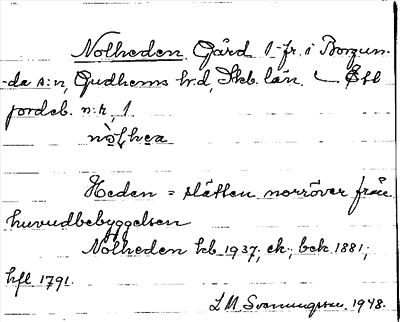 Nolheden. Gård 1 fr. i Borgun-
da s:n, Gudhems h:d, Skb. län.
jordeb. n:r, 1.
nòl̥hea
Heden = slätten norröver från
huvudbebyggelsen
Nolheden kb 1937; ek; bek 1881;
hfl 1791.
L M Svenungsson. 1948.